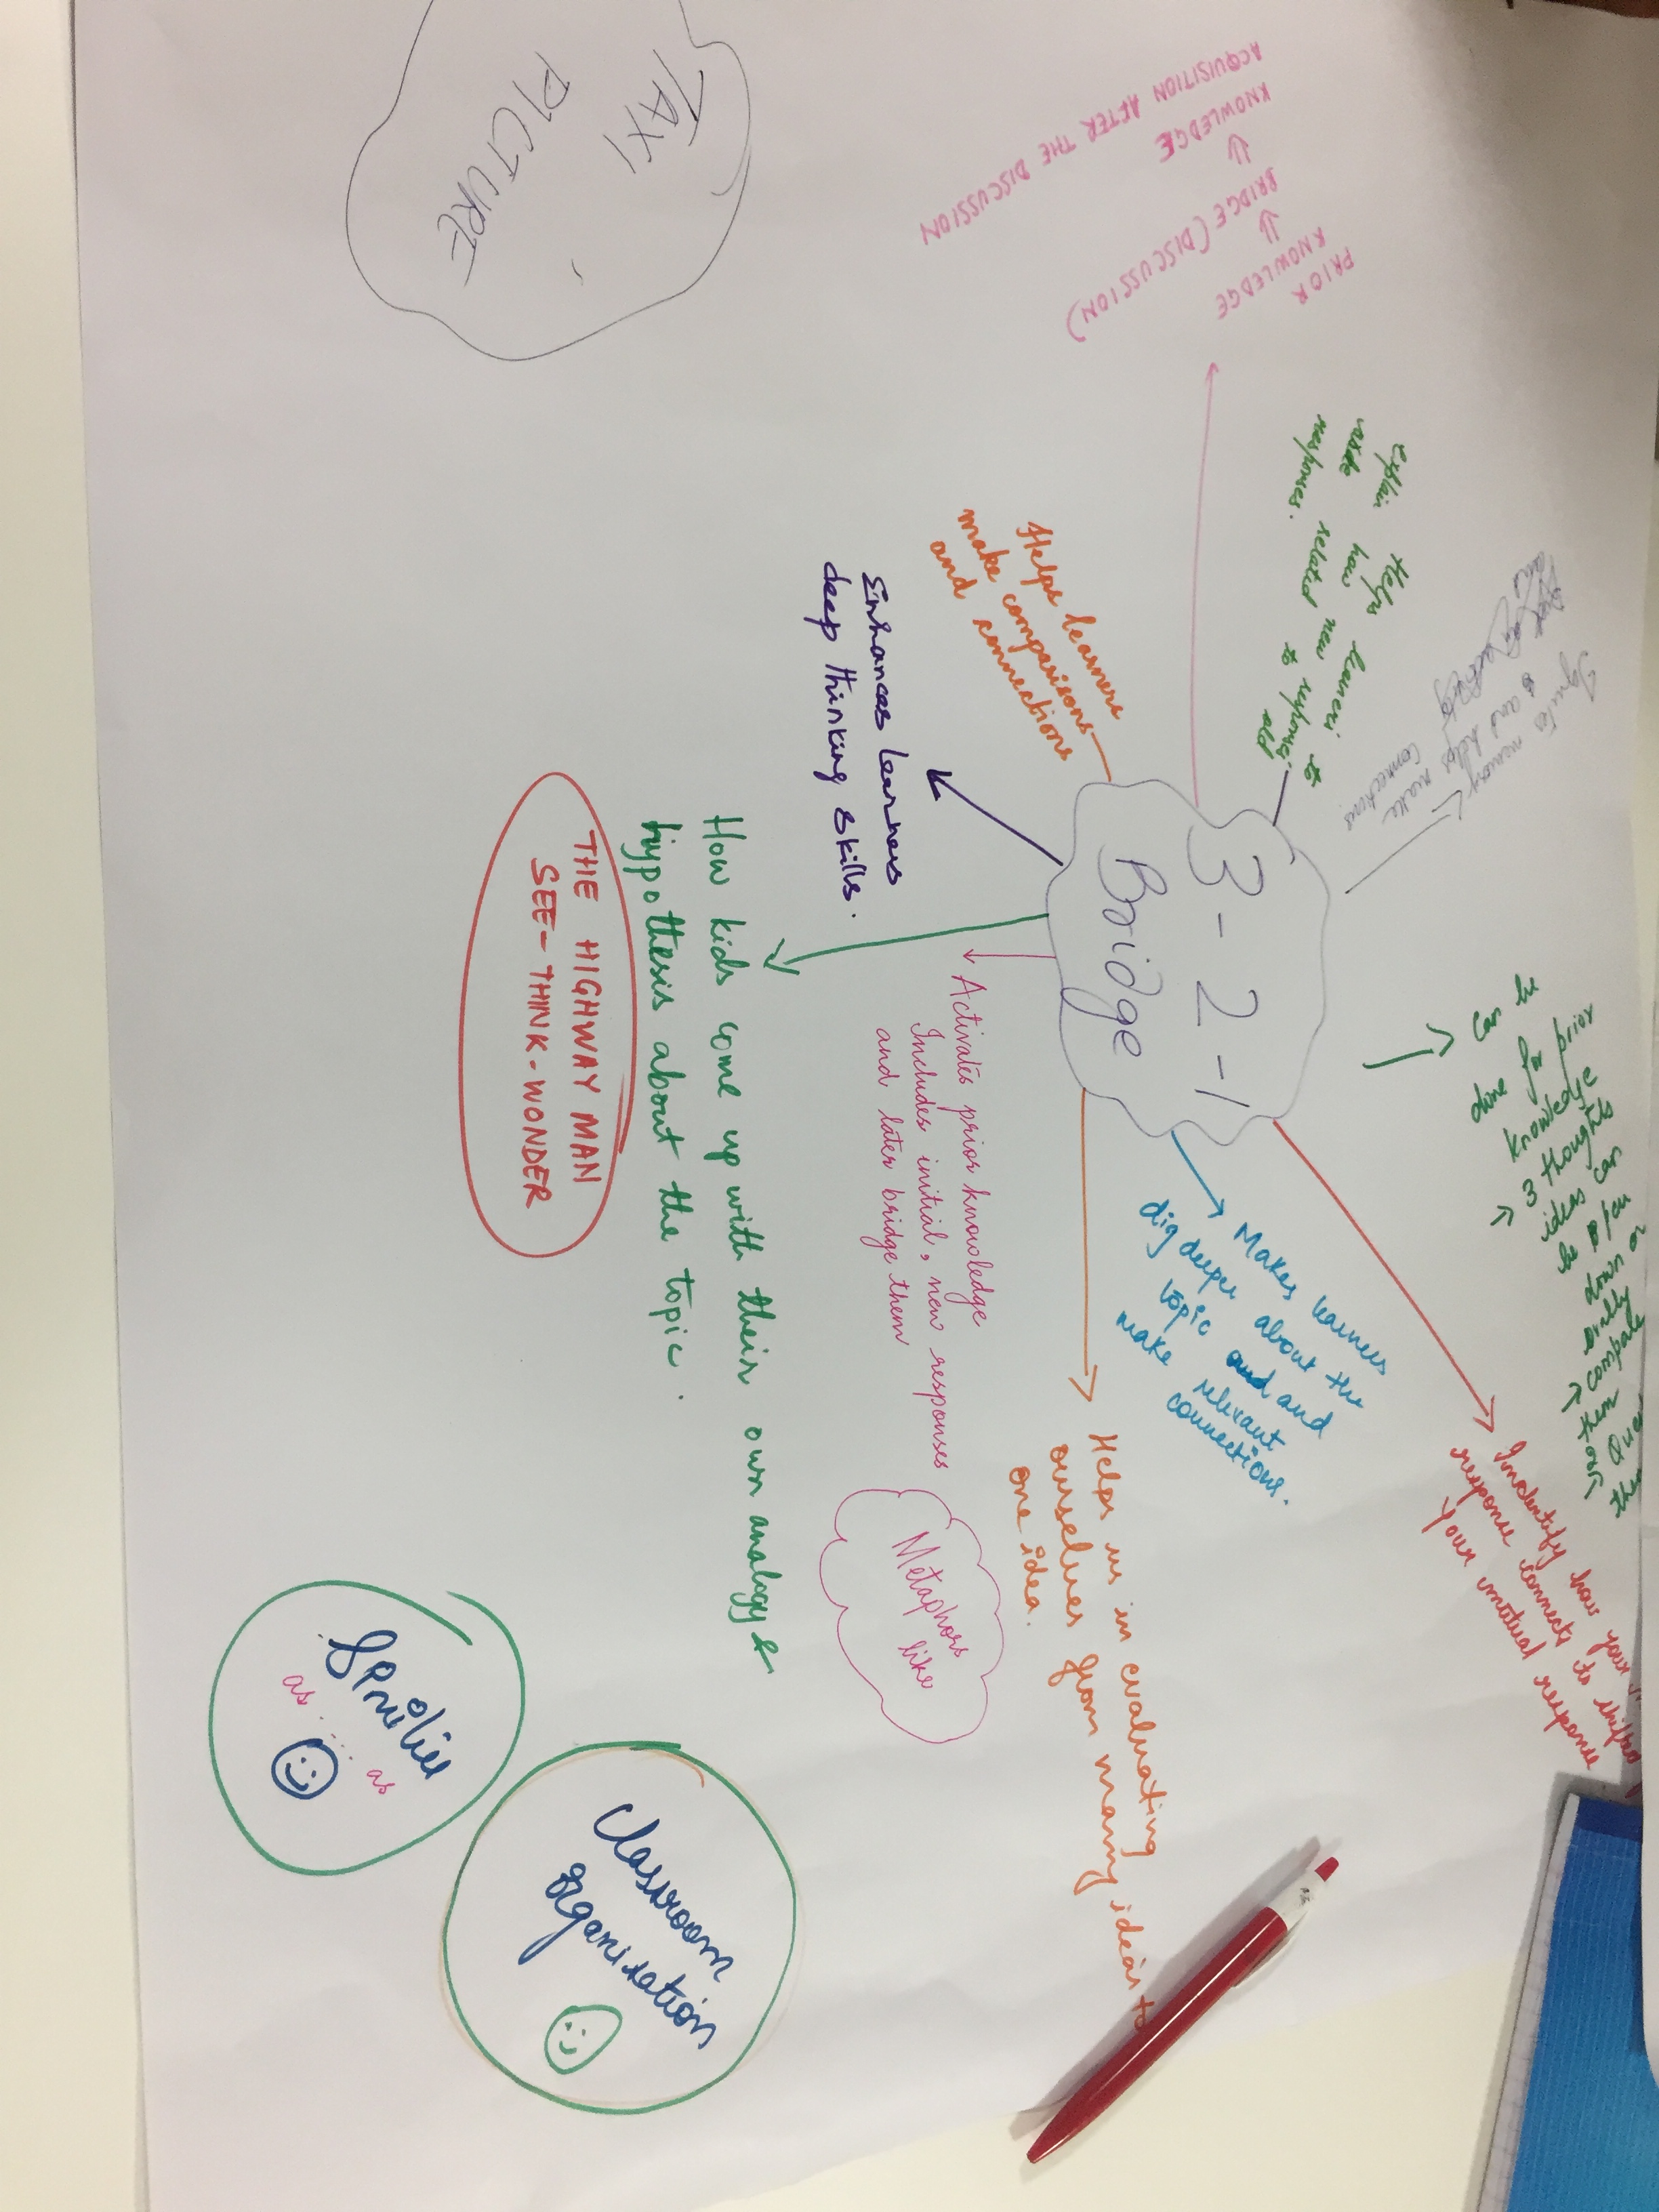 3-2-1
Bridge
PRIOR
KNOWLEDGE
⇓
BRIDGE (DISCUSSION)
⇓
KNOWLEDGE
ACQUISITION AFTER THE DISCUSSION
Helps learners to
explain how new response
related to old
responses.
memory
and helps
make
connections.
Can be
done for prior
knowledge
→ 3 thoughts
ideas can
be
down or
orally
→ compare
them
response connects to
your initial response
Makes learners
dig deeper about the
topic and
make relevant
connections.
Helps us in evaluating
ourselves from many ideas to
one idea.
Activates prior knowledge
Includes initial, new responses
and later bridge them
Metaphors
like
How kids come up with their own analogy &
hypothesis about the topic.
Enhances learners
deep thinking skills.
Helps learners
make comparisons
and connections
THE HIGHWAY MAN
SEE-THINK-WONDER
TAXI
PICTURE
Classroom
Organisation
as ..... as